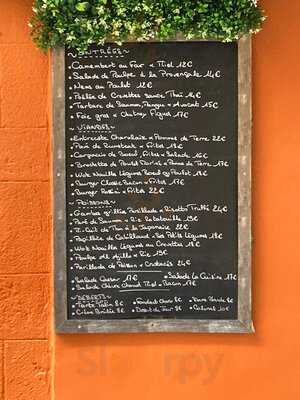 ~ ENTRÉES ~
• Camembert au Four au Miel 12€
• Salade de Poulpe à la Provençale 14€
• Nems au Poulet 12€
• Poêlée de Crevettes sauce Thaï 14€
• Tartare de Saumon, Mangue & Avocat 15€
• Foie gras & Chutney Figues 17€
~ VIANDES ~
• Entrecôte Charolaise & Pomme de Terre 22€
• Pavé de Rumsteak & Frites 18€
• Carpaccio de Boeuf, Frites & Salade 16€
• Brochette de Poulet Mariné & Pomme de Terre 17€
• Wok Nouilles Légumes Boeuf ou Poulet 18€
• Burger Classic Bacon & Frites 17€
• Burger Rossini & Frites 22€
~ POISSONS ~
• Gambas grillées Persillade & Risotto Truffé 24€
• Pavé de Saumon & Riz Ratatouille 19€
• Mi-Cuit de Thon à la Japonaise 22€
• Papillote de Cabillaud & Ses Petits Légumes 19€
• Wok Nouilles Légumes aux Crevettes 18€
• Poulpe all Ajillo & Riz 19€
• Parillada de Poisson & Crustacés 24€
• Salade César 17€ • Salade du Cuisine 17€
• Salade Chèvre Chaud Miel & Bacon 17€
~ DESSERTS ~
• Tarte Tatin 8€ • Fondant Choco 8€
• Crème Brûlée 8€ • Dessert du Jour 8€ • Colonel 10€